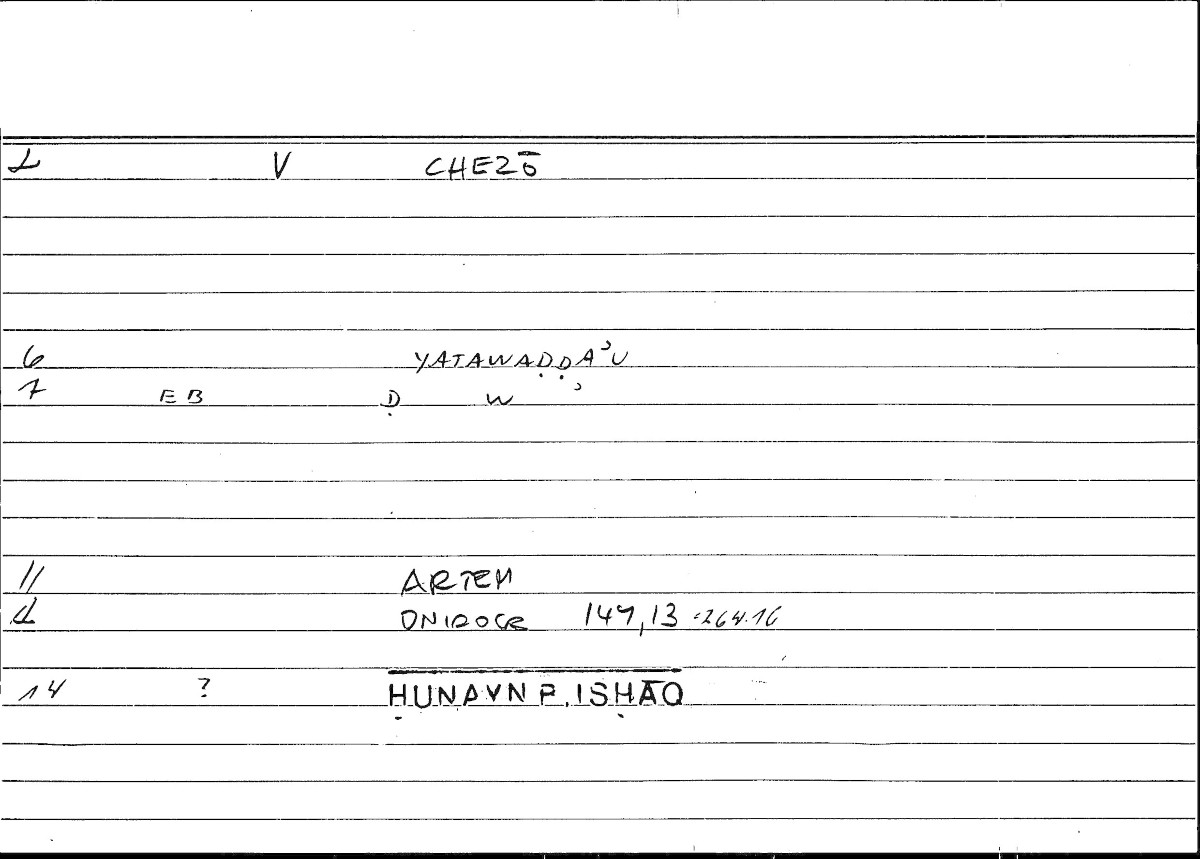 V CHEZŌ
6 YATAWAḌḌAʾU
7 EB Ḍ W ʾ
11 ARTEM
ONIROCR 147,13 =264.16
14 ? ḤUNAYN B. ISḤĀQ